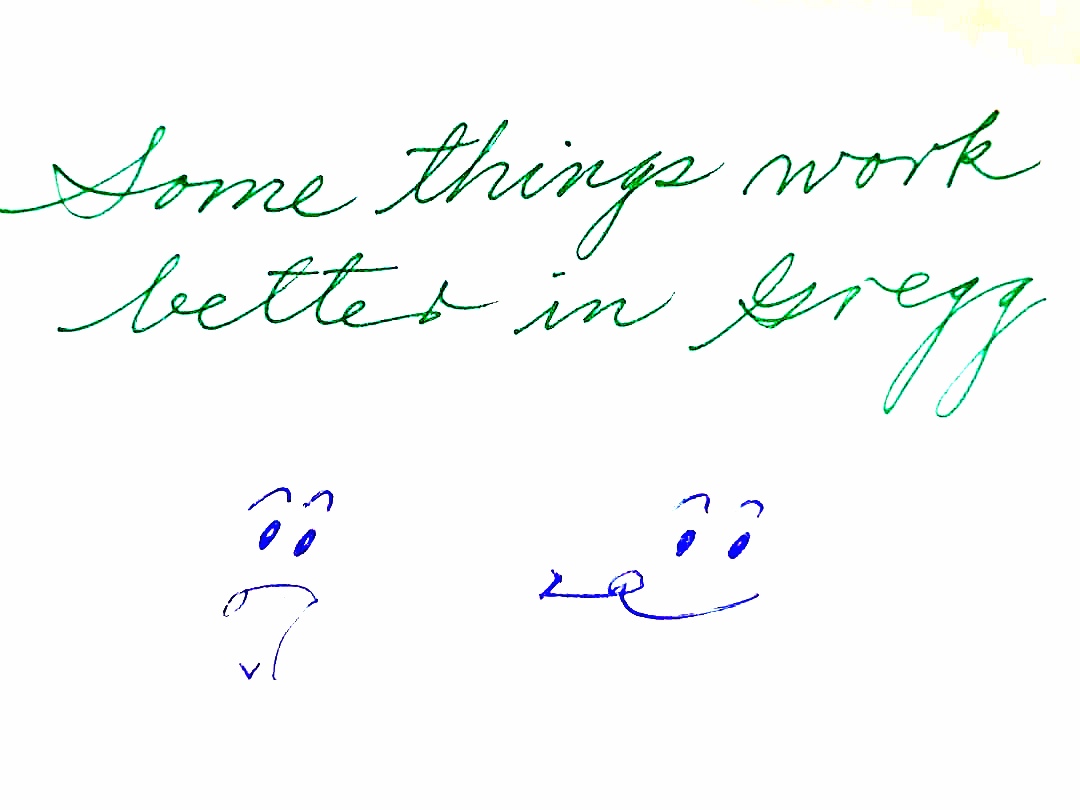 Some things work
better in Gregg